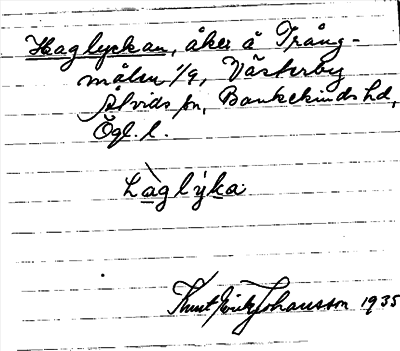 Haglyckan, åker å Trång-
målen 1/9, Västerby
Åtvids sn, Bankekinds hd,
Ögl. l.
Làglýka
Knut Erik Johansson 1935